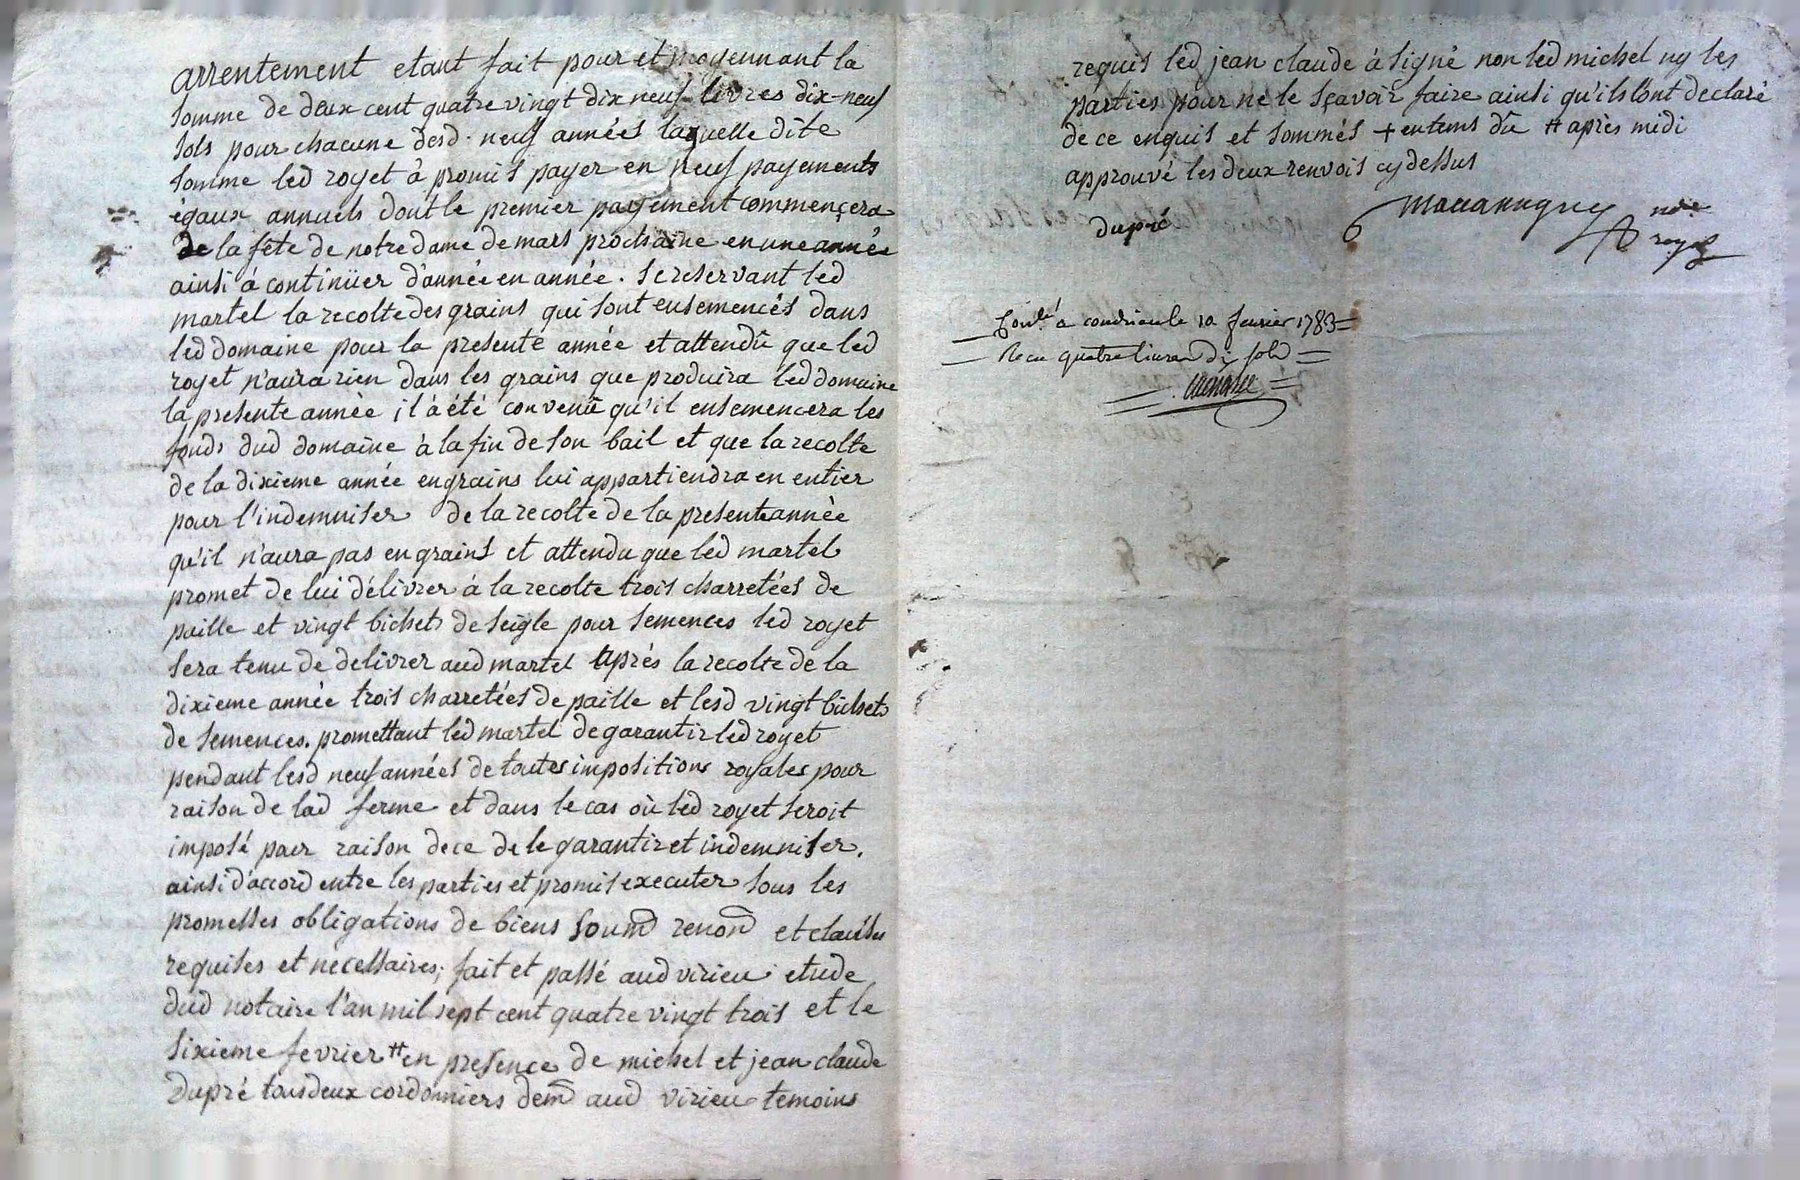 arrentement etant fait pour et moyennant la
somme de deux cent quatre vingt dix neuf livres dix-neuf
sols pour chacune desd. neuf années laquelle dite
somme led royet à promis payer en neuf payements
égaux annuels dont le premier payement commençera
de la fête de notre dame de mars prochaine en une année
ainsi à continüer d'année en année. se reservant led
martel la recolte des grains qui sont ensemencés dans
led domaine pour la presente année et attendû que led
royet n'aura rien dans les grains que produira led domaine
la presente année il à été convenû qu'il ensemencera les
fonds dud domaine à la fin de son bail et que la recolte
de la dixieme année en grains lui appartiendra en entier
pour l'indemniser de la recolte de la presente année
qu'il n'aura pas en grains et attendu que led martel
promet de lui délivrer à la recolte trois charretées de
paille et vingt bichets de seigle pour semences led royet
sera tenu de delivrer aud martel après la recolte de la
dixieme année trois charretées de paille et lesd vingt bichets
de semences. promettant led martel de garantir led royet
pendant lesd neuf années de toutes impositions royales pour
raison de lad ferme et dans le cas où led royet seroit
imposé pour raison de ce de le garantir et indemniser.
ainsi d'accord entre les parties et promis executer sous les
promesses obligations de biens soumd renond et clauses
requises et necessaires; fait et passé aud virieu etude
dud notaire l'an mil sept cent quatre vingt trois et le
sixieme fevrier # en presence de michel et jean claude
dupré tous deux cordonniers demd aud virieu temoins
requis led jean claude à signé non led michel ny les
parties pour ne le sçavoir faire ainsi qu'ils l'ont declaré
de ce enquis et sommés + entems dû # après midi
approuvé les deux renvois cy dessus
dupré
nre
royal
Conlé a condrieu le 10 fevrier 1783
Recu quatre livres dix sols